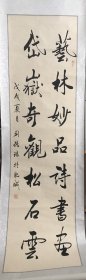 藝林妙品詩書畫
岱嶽奇觀松石雲
戊戌夏月